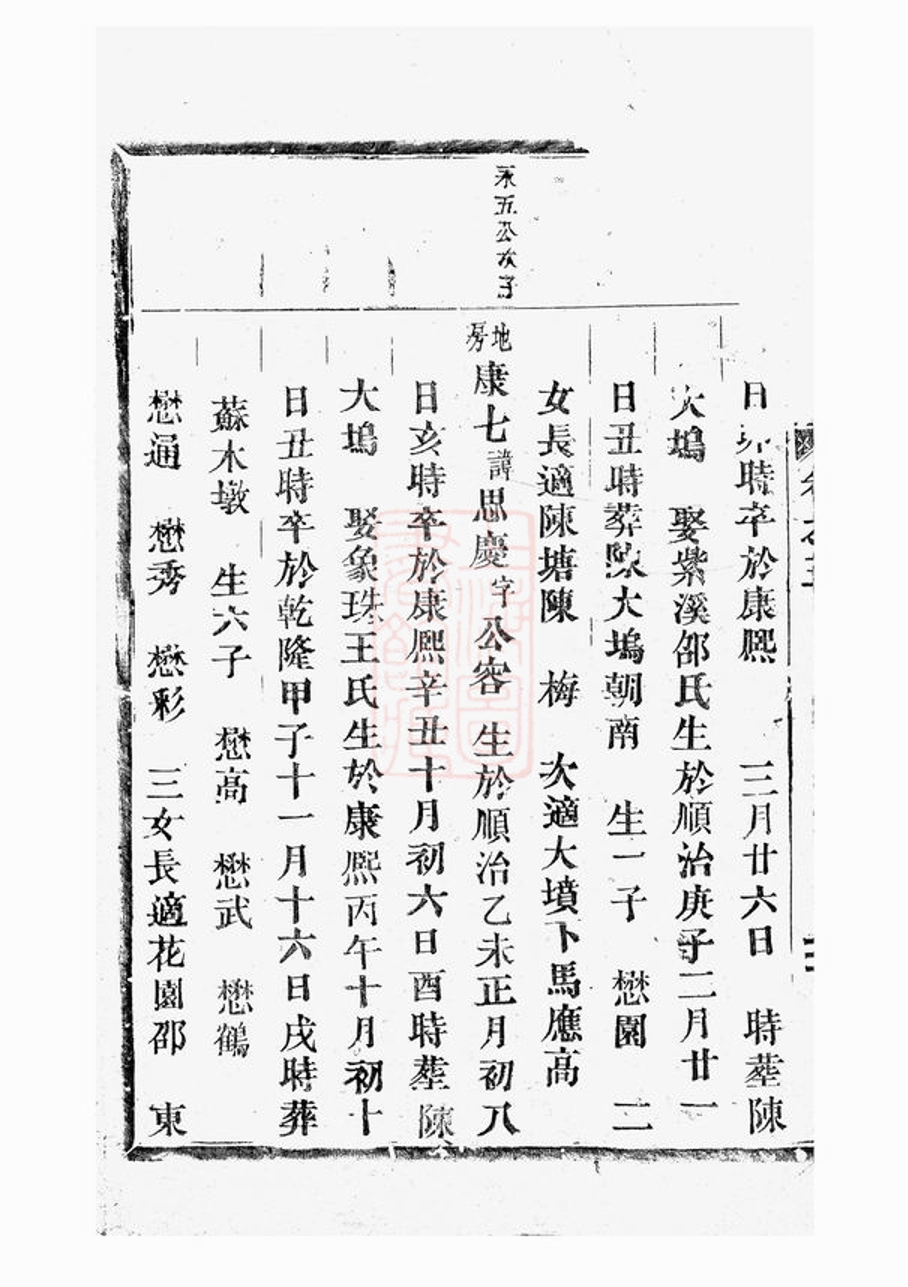 日卯時卒於康熙 三月廿六日 時塟陳
大塢 娶紫溪邵氏生於順治庚子二月廿一
日丑時葬陳大塢朝南 生一子 懋園 二
女長適陳塘陳 梅 次適大墳下馬應高
永五公次子
地房 康七諱思慶字公容 生於順治乙未正月初八
日亥時卒於康熙辛丑十月初六日酉時塟陳
大塢 娶象珠王氏生於康熙丙午十月初十
日丑時卒於乾隆甲子十一月十六日戌時葬
蘇木墩 生六子 懋高 懋武 懋鶴
懋通 懋秀 懋彩 三女長適花園邵 東